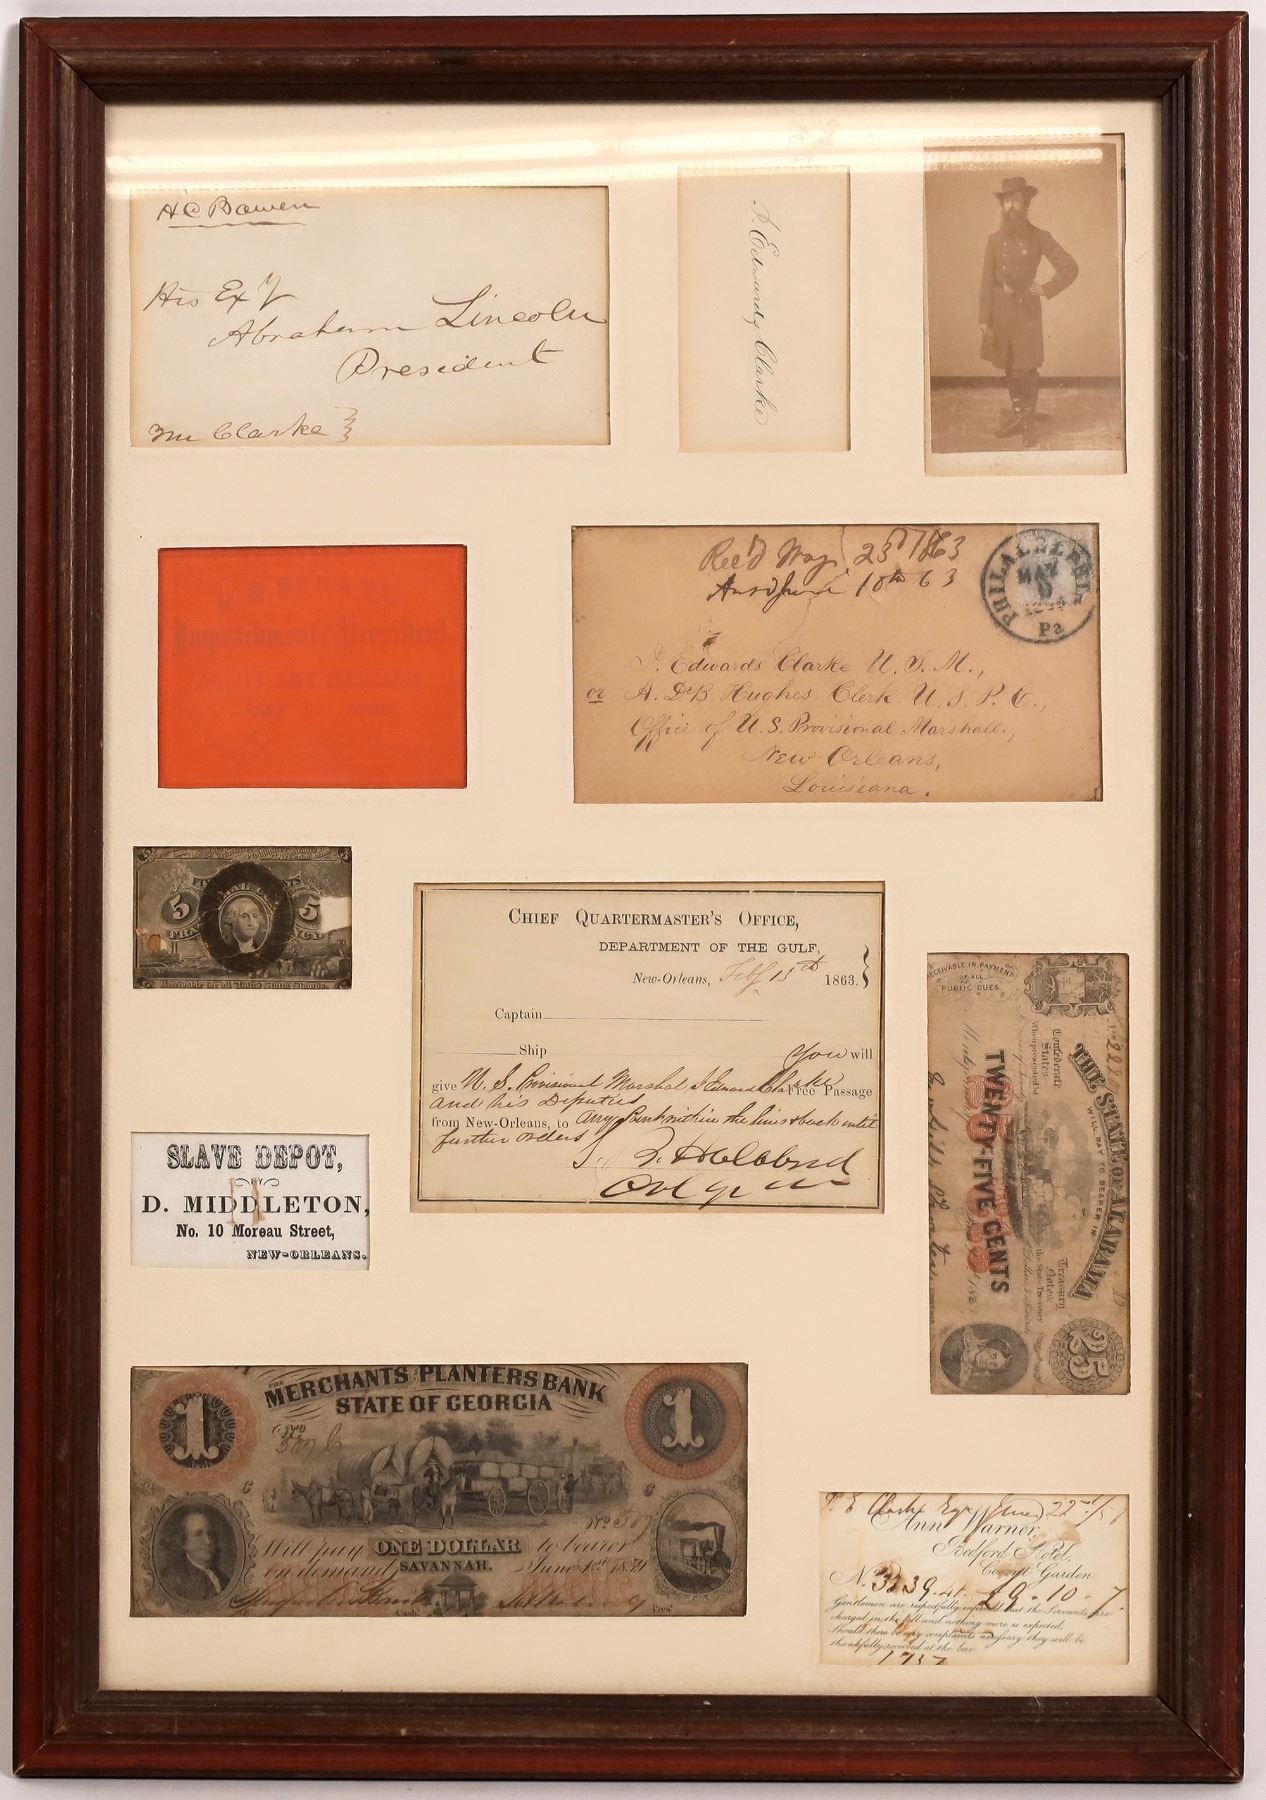 H C Bowen
His Exy
Abraham Lincoln
President
Mr Clarke
J. Edwards Clarke
Impeachment President
Rec'd May 23d 1863
Ansd June 10th 63
PHILADELPHIA
MAY
Pa
J. Edwards Clarke U. S. M.,
or A. DeB Hughes. Clerk U. S. P. C.,
Office of U. S. Provisional Marshall,
New Orleans,
Louisiana.
5 5
Receivable for all United States Stamps
CHIEF QUARTERMASTER'S OFFICE,
DEPARTMENT OF THE GULF,
New-Orleans, Feby 13th 1863.
Captain
Ship You will
give U. S. Provisional Marshal J Edwards Clarke Free Passage
and his Deputies
from New-Orleans, to any Point within the lines & back until
further orders
RECEIVABLE IN PAYMENT
OF ALL
PUBLIC DUES.
THE STATE OF ALABAMA
WILL PAY TO BEARER IN
Confederate
States
Treasury
Notes
TWENTY-FIVE CENTS
25
SLAVE DEPOT,
BY
D. MIDDLETON,
No. 10 Moreau Street,
NEW-ORLEANS.
THE
MERCHANTS & PLANTERS BANK
STATE OF GEORGIA
1 1
C C
Will pay ONE DOLLAR to bearer
on demand SAVANNAH. June 1st 1859
Cash' Pres'
J. E. Clarke Esqr June 22nd /57
Ann Warner,
Bedford Hotel,
Covent Garden
No. 3339
£9. 10. 7.
Gentlemen are respectfully informed that the Servants are
charged in the bill and nothing more is expected.
Should there be any complaints necessary they will be
thankfully received at the bar.